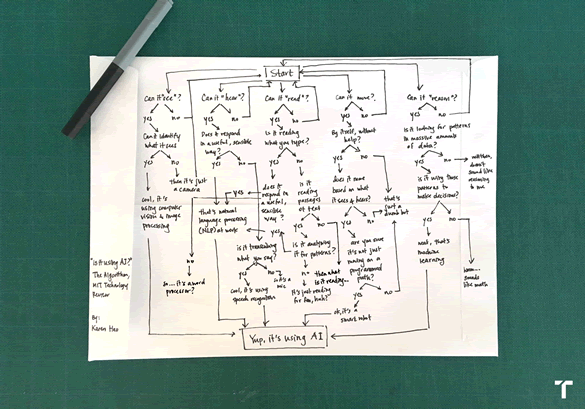 Start
Can it "see"?
yes
no
Can it identify
what it sees
yes
no
then it's just
a camera
cool, it's
using computer
vision & image
processing
Can it "hear"?
yes
no
Does it respond
in a useful, sensible
way?
yes
no
that's natural
language processing
(NLP) at work
is it transcribing
what you say?
yes
no
so it's a
mic
cool, it's using
speech recognition
Can it "read"?
yes
no
Is it reading
what you type?
yes
no
does it
respond in
a useful,
sensible
way?
yes
no
so... it's a word
processor?
is it
reading
passages
of text
yes
no
is it analyzing
it for patterns?
yes
no
it's just reading
for fun, huh?
then what
is it reading...
Can it move?
yes
no
By itself, without
help?
yes
no
does it move
based on what
it sees & hears?
yes
no
that's
just a
dumb bot
are you sure
it's not just
running on a
preprogrammed
path?
yes
no
ok, it's a
smart robot
Can it "reason"?
yes
no
is it looking for patterns
in massive amounts
of data?
yes
no
well then,
doesn't
sound like
reasoning
to me
is it using those
patterns to
make decisions?
yes
no
neat, that's
machine
learning
hmm...
sounds
like math
Yup, it's using AI
"Is it using AI?"
The Algorithm,
MIT Technology
Review
By:
Karen Hao